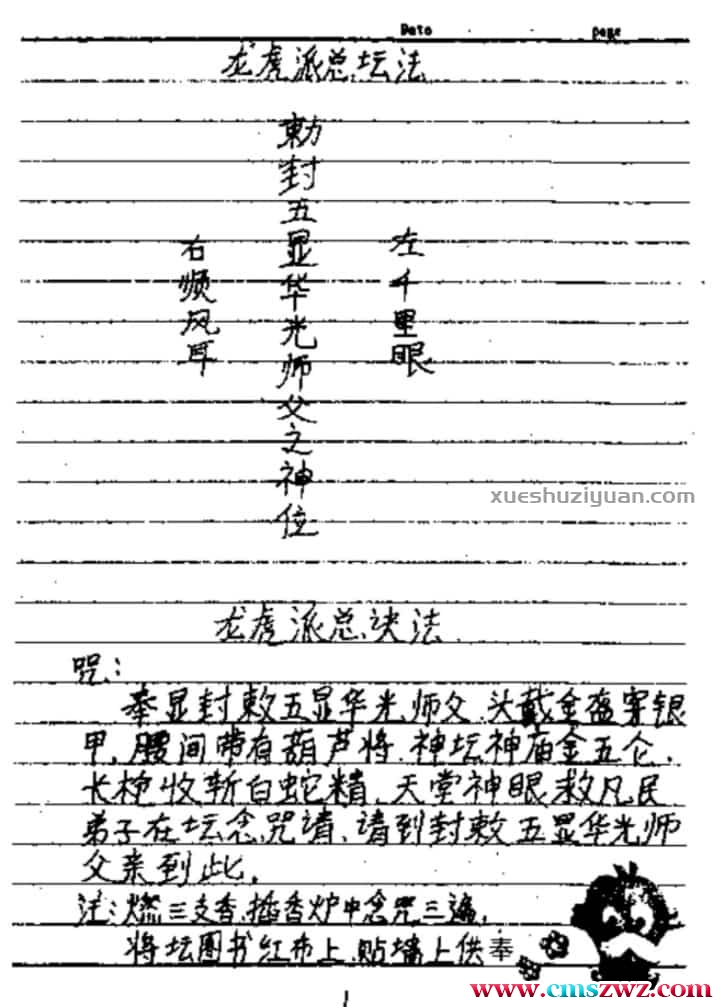 Date
page
龙虎派总坛法
敕封五显华光师父之神位
左千里眼
右顺风耳
xueshuziyuan.com
龙虎派总诀法
咒:
奉显封敕五显华光师父,头戴金盔穿银
甲,腰间带有葫芦将,神坛神庙金五仑,
长枪收斩白蛇精,天堂神眼救凡民
弟子在坛念咒请,请到封敕五显华光师
父亲到此。
注:燃三支香,插香炉中念咒三遍,
将坛图书红布上,贴墙上供奉
www.cmszwz.com
1